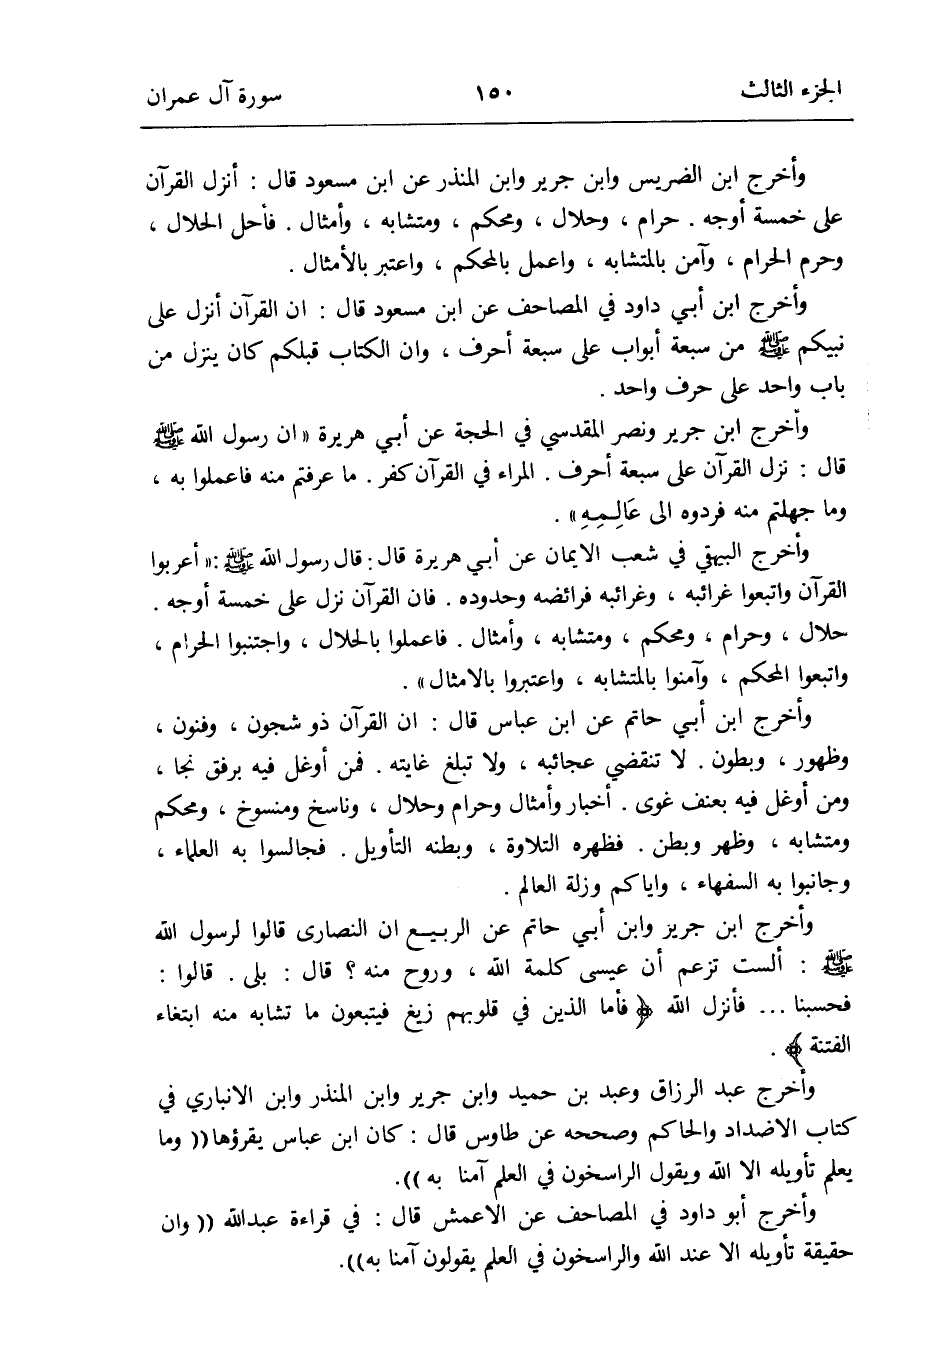 الجزء الثالث ١٥٠ سورة آل عمران
وأخرج ابن الضريس وابن جرير وابن المنذر عن ابن مسعود قال : أنزل القرآن
على خمسة أوجه . حرام ، وحلال ، ومحكم ، ومتشابه ، وأمثال . فأحل الحلال ،
وحرم الحرام ، وآمن بالمتشابه ، واعمل بالمحكم ، واعتبر بالأمثال .
وأخرج ابن أبي داود في المصاحف عن ابن مسعود قال : ان القرآن أنزل على
نبيكم ﷺ من سبعة أبواب على سبعة أحرف ، وان الكتاب قبلكم كان ينزل من
باب واحد على حرف واحد .
وأخرج ابن جرير ونصر المقدسي في الحجة عن أبي هريرة « ان رسول الله ﷺ
قال : نزل القرآن على سبعة أحرف . المراء في القرآن كفر . ما عرفتم منه فاعملوا به ،
وما جهلتم منه فردوه الى عَالِـمِـهِ » .
وأخرج البيهقي في شعب الايمان عن أبي هريرة قال : قال رسول الله ﷺ :« أعربوا
القرآن واتبعوا غرائبه ، وغرائبه فرائضه وحدوده . فان القرآن نزل على خمسة أوجه .
حلال ، وحرام ، ومحكم ، ومتشابه ، وأمثال . فاعملوا بالحلال ، واجتنبوا الحرام ،
واتبعوا المحكم ، وآمنوا بالمتشابه ، واعتبروا بالامثال » .
وأخرج ابن أبي حاتم عن ابن عباس قال : ان القرآن ذو شجون ، وفنون ،
وظهور ، وبطون . لا تنقضي عجائبه ، ولا تبلغ غايته . فمن أوغل فيه برفق نجا ،
ومن أوغل فيه بعنف غوى . أخبار وأمثال وحرام وحلال ، وناسخ ومنسوخ ، ومحكم
ومتشابه ، وظهر وبطن . فظهره التلاوة ، وبطنه التأويل . فجالسوا به العلماء ،
وجانبوا به السفهاء ، واياكم وزلة العالم .
وأخرج ابن جريز وابن أبي حاتم عن الربيع ان النصارى قالوا لرسول الله
ﷺ : ألست تزعم أن عيسى كلمة الله ، وروح منه ؟ قال : بلى . قالوا :
فحسبنا ... فأنزل الله ﴿ فأما الذين في قلوبهم زيغ فيتبعون ما تشابه منه ابتغاء
الفتنة ﴾ .
وأخرج عبد الرزاق وعبد بن حميد وابن جرير وابن المنذر وابن الانباري في
كتاب الاضداد والحاكم وصححه عن طاوس قال : كان ابن عباس يقرؤها (( وما
يعلم تأويله الا الله ويقول الراسخون في العلم آمنا به )).
وأخرج أبو داود في المصاحف عن الاعمش قال : في قراءة عبدالله (( وان
حقيقة تأويله الا عند الله والراسخون في العلم يقولون آمنا به)).